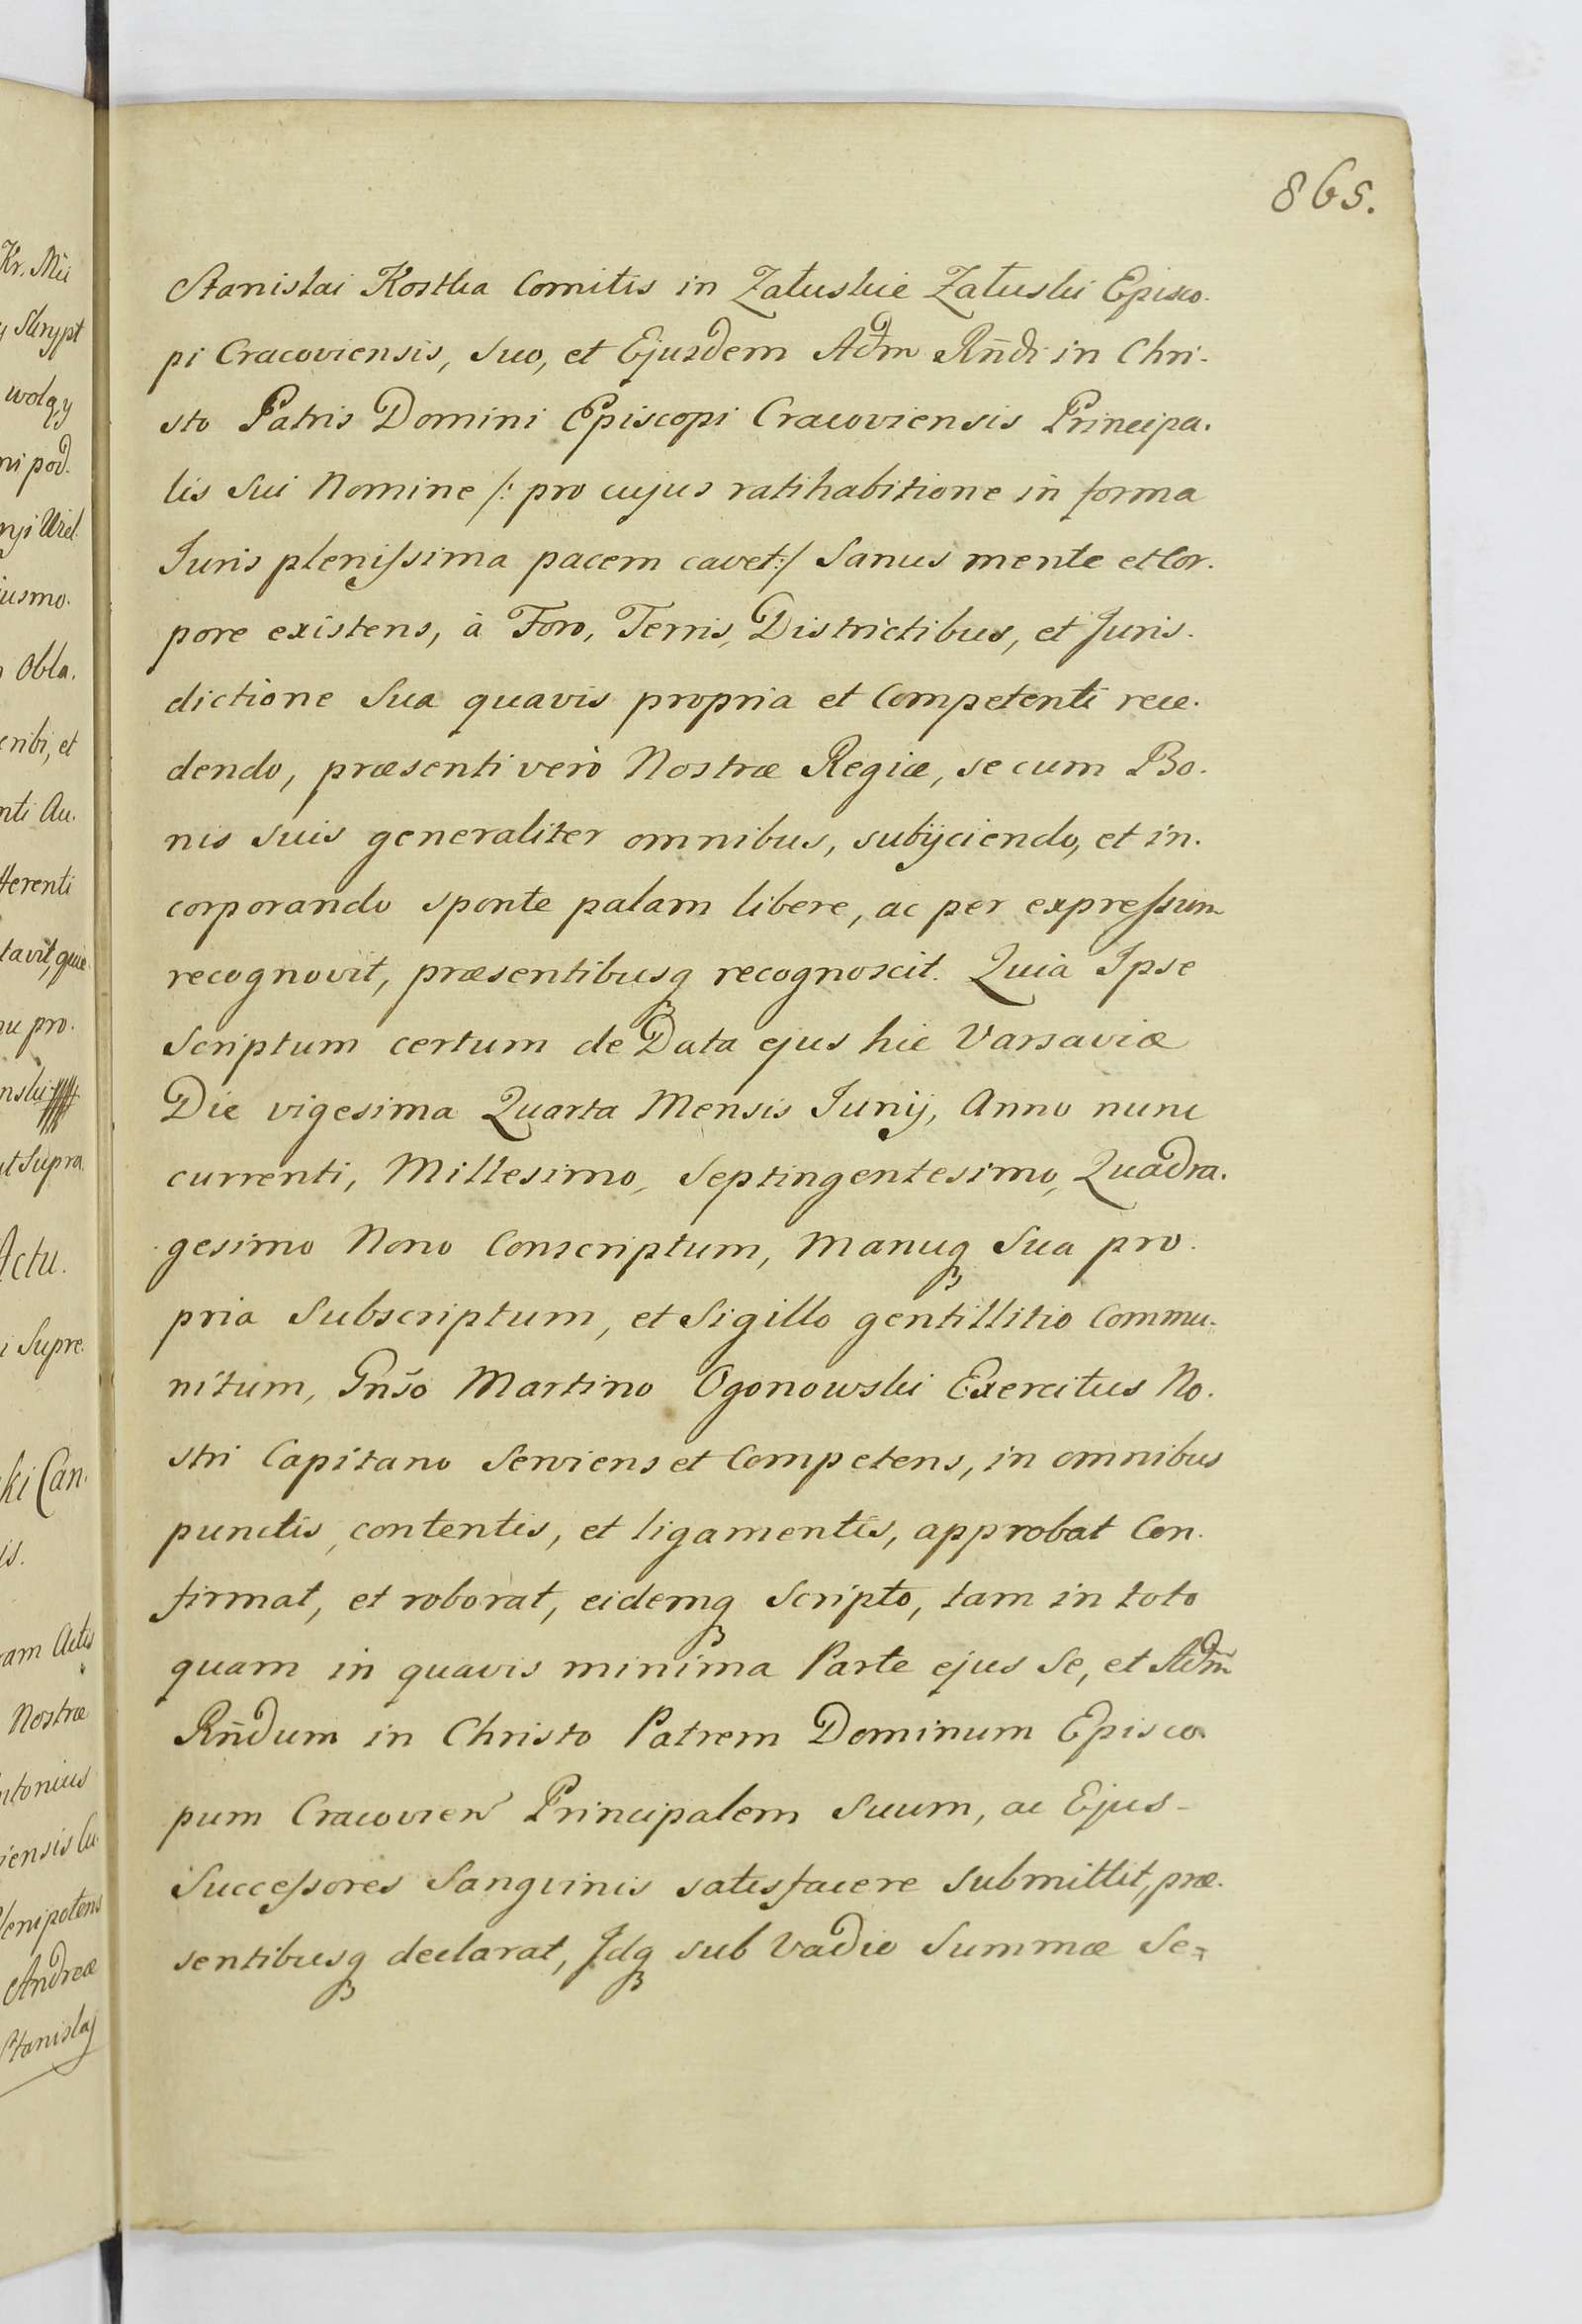 865.
Kr. Mci
Skrypt
wolą, y
ni pod.
nyi Uriel
iusmo.
Obla.
cribi, et
nti Au.
fferenti
tavit, quia
nu pro.
nski
ut Supra
Actu.
i Supre.
ki Can.
is.
ram Actis
Nostræ
ntonius
iensis Cu.
lenipotens
Andreæ
Stanislaj
Stanislai Kostka Comitis in Załuskie Załuski Episco.
pi Cracoviensis, Suo, et Ejusdem Adm Rñdi in Chri.
sto Patris Domini Episcopi Cracoviensis Principa.
lis Sui Nomine /: pro cujus ratihabitione in forma
Juris plenissima pacem cavet :/ Sanus mente et Cor.
pore existens, à Foro, Terris, Districtibus, et Juris.
dictione Sua quavis propria et Competenti rece.
dendo, præsenti verò Nostræ Regiæ, se cum Bo.
nis suis generaliter omnibus, subijciendo, et in.
corporando sponte palam libere, ac per expressum
recognovit, præsentibusq recognoscit. Quia Ipse
Scriptum certum de Data ejus hic Varsaviæ
Die vigesima Quarta Mensis Junij, Anno nunc
currenti, Millesimo, Septingentesimo, Quadra.
gesimo Nono Conscriptum, Manuq Sua pro.
pria Subscriptum, et Sigillo gentillitio Commu.
nitum, Gnśo Martino Ogonowski Exercitus No.
stri Capitano Serviens et Competens, in omnibus
punctis, contentis, et ligamentis, approbat Con.
firmat, et roborat, eidemq Scripto, tam in toto
quam in quavis minima Parte ejus Se, et Adm̃
Rñdum in Christo Patrem Dominum Episco.
pum Cracovien Principalem Suum, ac Ejus-
Successores Sanguinis satisfacere submittit, præ.
sentibusq declarat, Jdq sub Vadio Summæ Se-